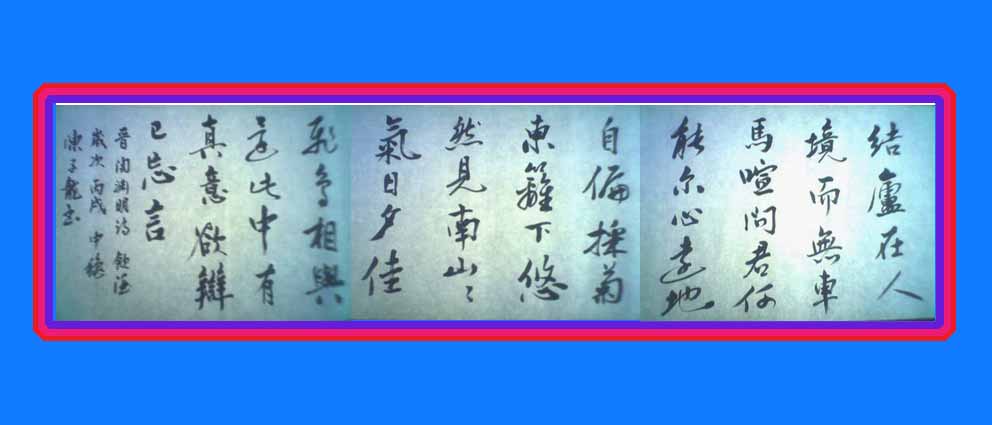 結廬在人
境而無車
馬喧問君何
能尔心遠地
自偏採菊
東籬下悠
然見南山〻
氣日夕佳
飛鳥相與
還此中有
真意欲辯
已忘言
晉陶渊明詩
歲次丙戌 中
陳子龍